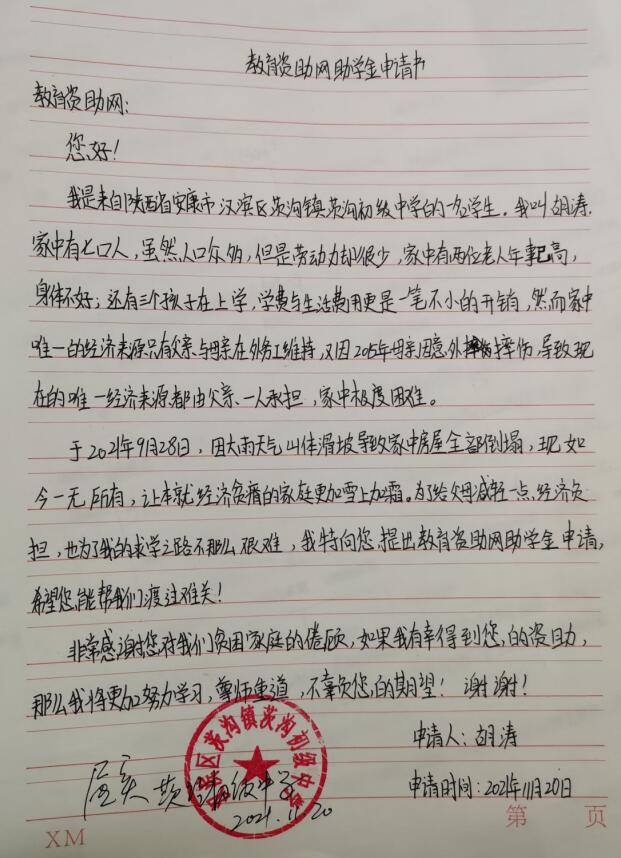 教育资助网助学金申请书
教育资助网：
您好！
我是来自陕西省安康市汉滨区茨沟镇茨沟初级中学的一名学生。我叫胡涛，
家中有七口人，虽然人口众多，但是劳动力却很少，家中有两位老人年事已高，
身体不好；还有三个孩子在上学，学费与生活费用更是一笔不小的开销，然而家中
唯一的经济来源只有父亲与母亲在外务工维持，又因2015年母亲因意外摔伤，导致现
在的唯一经济来源都由父亲一人承担，家中极度困难。
于2021年9月28日，因大雨天气山体滑坡导致家中房屋全部倒塌，现如
今一无所有，让本就经济贫瘠的家庭更加雪上加霜。为了给父母减轻一点经济负
担，也为了我的求学之路不那么艰难，我特向您提出教育资助网助学金申请，
希望您能帮我们渡过难关！
非常感谢您对我们贫困家庭的倦顾，如果我有幸得到您的资助，
那么我将更加努力学习，尊师重道，不辜负您的期望！谢谢！
申请人：胡涛
申请时间：2021年11月20日
滨区茨沟镇茨沟初级中学
属实 茨沟初级中学
2021.11.20
XM
第 页